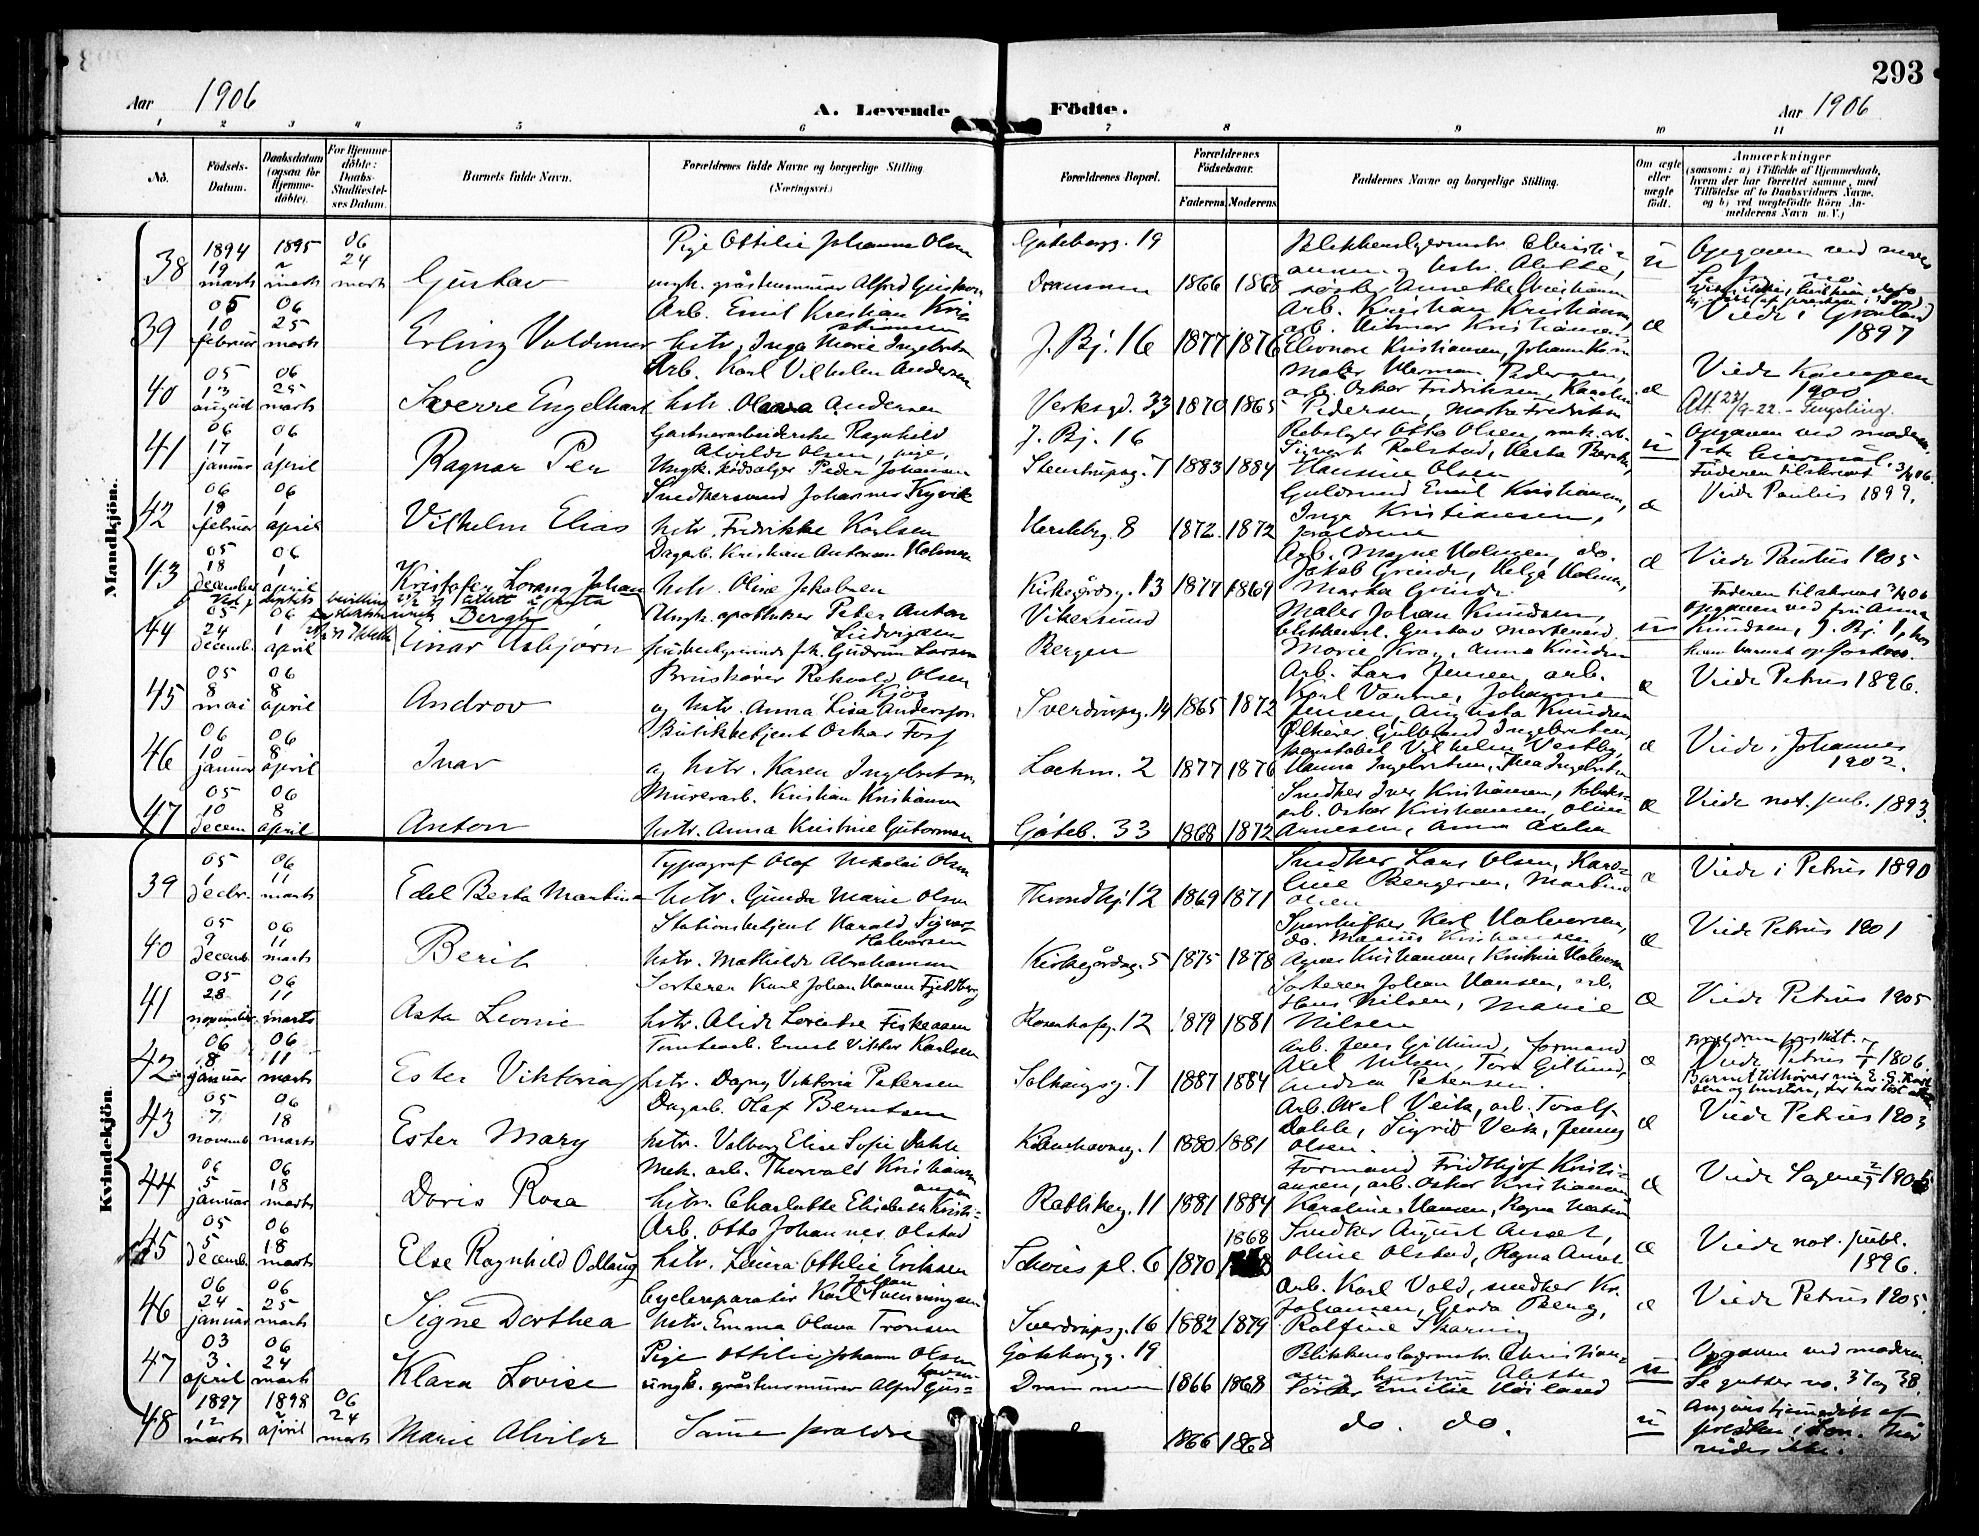 293
Aar 1906
A. Levende Födte.
Aar 1906
1 2 3 4 5 6 7 8 9 10 11
No.
Födsels-Datum.
Daabsdatum (ogsaa for Hjemme-döbte).
For Hjemme-döbte: Daabs-Stadfæstel-ses Datum.
Barnets fulde Navn.
Forældrenes fulde Navne og borgerlige Stilling (Næringsvei.)
Forældrenes Bopæl.
Forældrenes Födselsaar.
Faderens Moderens
Faddernes Navne og borgerlige Stilling.
Om ægte eller uægte födt.
Anmærkninger
(saasom: a) i Tilfælde af Hjemmedaab, hvem der har forrettet samme, med Tilföielse af to Daabsvidners Navne. og b) ved uægtefödte Börn An-melderens Navn m. V.)
Mandkjön.
38 1894 19 marts 1895 marts 06 24 marts Gustav
Pige Ottilie Johanne Olsen
ungk. gråstensmurer Alfred Gustavsen
Göteborgg. 19
Drammen 1866 1868
u
Opgaven ved moren
39 05 10 februar 06 25 marts Erling Valdemar
Arb. Emil Kristian Kristiansen
hstr. Inga Marie Ingebretsen
J. Bj. 16 1877 1876
Arb. Kristian Kristiansen,
Eleonore Kristiansen, Johanne
æ
Viede i Grönland
1897
40 05 13 august 06 25 marts Sverre Engelhart
Arb. Karl Vilhelm Andersen
hstr. Olava Andersen
Verksgd. 33 1870 1865
Maler Herman Pedersen,
arb. Oskar Fredriksen, Karoline
Pedersen, Marta Fredriksen
æ
Viede Kampen
1900
41 06 17 januar 06 1 april Ragnar Per
Gartnerarbeiderske Ragnhild
Alvilde Olsen, pige,
Ungk. kjødsælger Peder Johansen
J. Bj. 16
Steenstrupsg. 7 1883 1884
Rebslager Otto Olsen, mek. arb.
Hansine Olsen
u
Opgaven ved moderen
Faderen tilskrevet 3/4 06.
42 06 18 februar 06 1 april Vilhelm Elias
Snedkersvend Johannes Kyvik
hstr. Fredrikke Karlsen
Herslebg. 8 1872. 1872
Guldsmed Emil Kristiansen,
Inga Kristiansen,
forældrene
æ
Viede Paulus 1899.
43 05 18 december 06 1 april Kristofer Lorang Johan
Dagarb. Kristian Antonsen Holmen
hstr. Oline Jakobsen
Kirkegårdsg. 13 1877 1869
Arb. Magne Holmen, do.
Jakob Grinde, Helga Holmen,
Marta Grinde
æ
Viede Paulus 1905
44 05 24 decemb. 06 1 april Einar Asbjørn
Bergh
Ungk. apotheker Peter Anton
Ludvigsen
frk. Gudrun Larsen
Vikersund
Bergen
Maler Johan Knudsen,
blikkensl. Gustav Mortensen.
Marie Kro, Anna Knudsen
u
Faderen tilskrevet 3/4 06
opgaven ved fru Anna
Knudsen, J. Bj. 1, hos
45 05 8 mai 06 8 april Androv
Bruskjører Rehvald Olsen
Kjos
og hstr. Anna Lisa Andersson
Sverdrupsg. 14 1865 1872
Arb. Lars Jensen, arb.
Karl Vanme, Johanne
Jensen, Augusta Knudsen
æ
Viede Petrus 1896.
46 06 10 januar 06 8 april Ivar
Butikbetjent Oskar Foss
og hstr. Karen Ingebretsen
Lochm. 2 1877 1876
Ølkjører Gulbrand Ingebretsen,
konstabel Vilhelm Vestby,
Hanna Ingebretsen, Thea Ingebretsen
æ
Viede i Johannes
1902.
47 05 10 decem. 06 8 april Anton
Murerarb. Kristian Kristiansen
hstr. Anna Kristine Gutormsen
Göteb. 33 1868 1872
Snedker Iver Kristiansen, fabriks-
arb. Oskar Kristiansen, Oline
Arnesen, Anna Axelsen
æ
Viede not. pub. 1893.
Kvindekjön
39 05 1 decbr. 06 11 marts Edel Berta Martina
Typograf Olaf Nikolai Olsen
hstr. Gunda Marie Olsen
Throndhj. 12 1869 1871
Snedker Lars Olsen, Karo-
line Bergersen, Martine
Olsen
æ
Viede i Petrus 1890
40 05 9 decemb. 06 11 marts Berit
Stationsbetjent Harald Sigvart
Halvorsen
hstr. Mathilde Abrahamsen
Kirkegårdsg. 5 1875 1878
Sporskifter Karl Halvorsen,
do. Marius Kristiansen
Agnes Kristiansen, Kristine Halvorsen
æ
Viede Petrus 1901
41 05 28 november 06 11 marts Asta Leonie
Sorterer Karl Johan Hansen Fjeldberg
hstr. Alide Lorentse Fiskeaasen
Rosenhofg. 12 1879 1881
Sorterer Johan Hansen, arb.
Hans Nilsen, Marie
Nilsen
æ
Viede Petrus 1905
42 06 8 januar 06 11 marts Ester Viktoria
Tomtearb. Ernst Viktor Karlsen
hstr. Dagny Viktoria Petersen
Solhaugsg. 7 1887 1884
Arb. Jens Gillund, formand
Axel Nilsen, Tora Gillund,
Andrea Petersen.
æ
Viede Petrus 1806.
43 05 7 novemb 06 18 marts Ester Mary
Dagarb. Olaf Berntsen
hstr. Valborg Elise Sofie Dahle
Kbenhavneg. 1 1880 1881
Arb. Axel Veik, arb. Toralf
Dahle, Sigrid Veik, Jenny
Olsen.
æ
Viede Petrus 1903
44 06 5 januar 06 18 marts Doris Rosa
Mek. arb. Thorvald Kristiansen
hstr. Charlotte Elisabeth Kristi-
ansen
Rathkeg. 11 1881 1884
Formand Fridthjof Kristi-
ansen, arb. Oskar Kristiansen
Karoline Hansen, Ragna Hansen
æ
Viede Sagene 1905
45 05 5 decemb. 06 18 marts Else Ragnhild Odlaug
Arb. Otto Johannes Olstad
hstr. Laura Ottilie Eriksen
Schous pl. 6 1870 1868
Snedker August Amot,
Oline Olstad, Ragna Amot
æ
Viede not. publ.
1896.
46 06 24 januar 06 25 marts Signe Dorthea
Cyclereparatör Karl Johan Henningsen
hstr. Emma Olava Tronsen
Sverdrupsg. 16 1882 1879
Arb. Karl Vold, snedker Kr.
Johansen, Gerda Berg,
Ralfine Skarning
æ
Viede Petrus 1905.
47 03 3. april 06 24 marts Klara Lovise
Pige Ottilie Johanne Olsen
ungk. gråstensmurer Alfred Gus-
tavsen
Götebergg. 19
Drammen 1866 1868
Blikkenslagermstr. Christian-
sen, hustru Alette
søster Emilie Höiland
u
Opgaven ved moderen
Se gutter no. 37 og 38.
48 1897 12 marts 1898 april 06 24 marts Marie Alvilde
Samme forældre
1866 1868
do. do.
u
Angives hjemmedöbt af
presten i